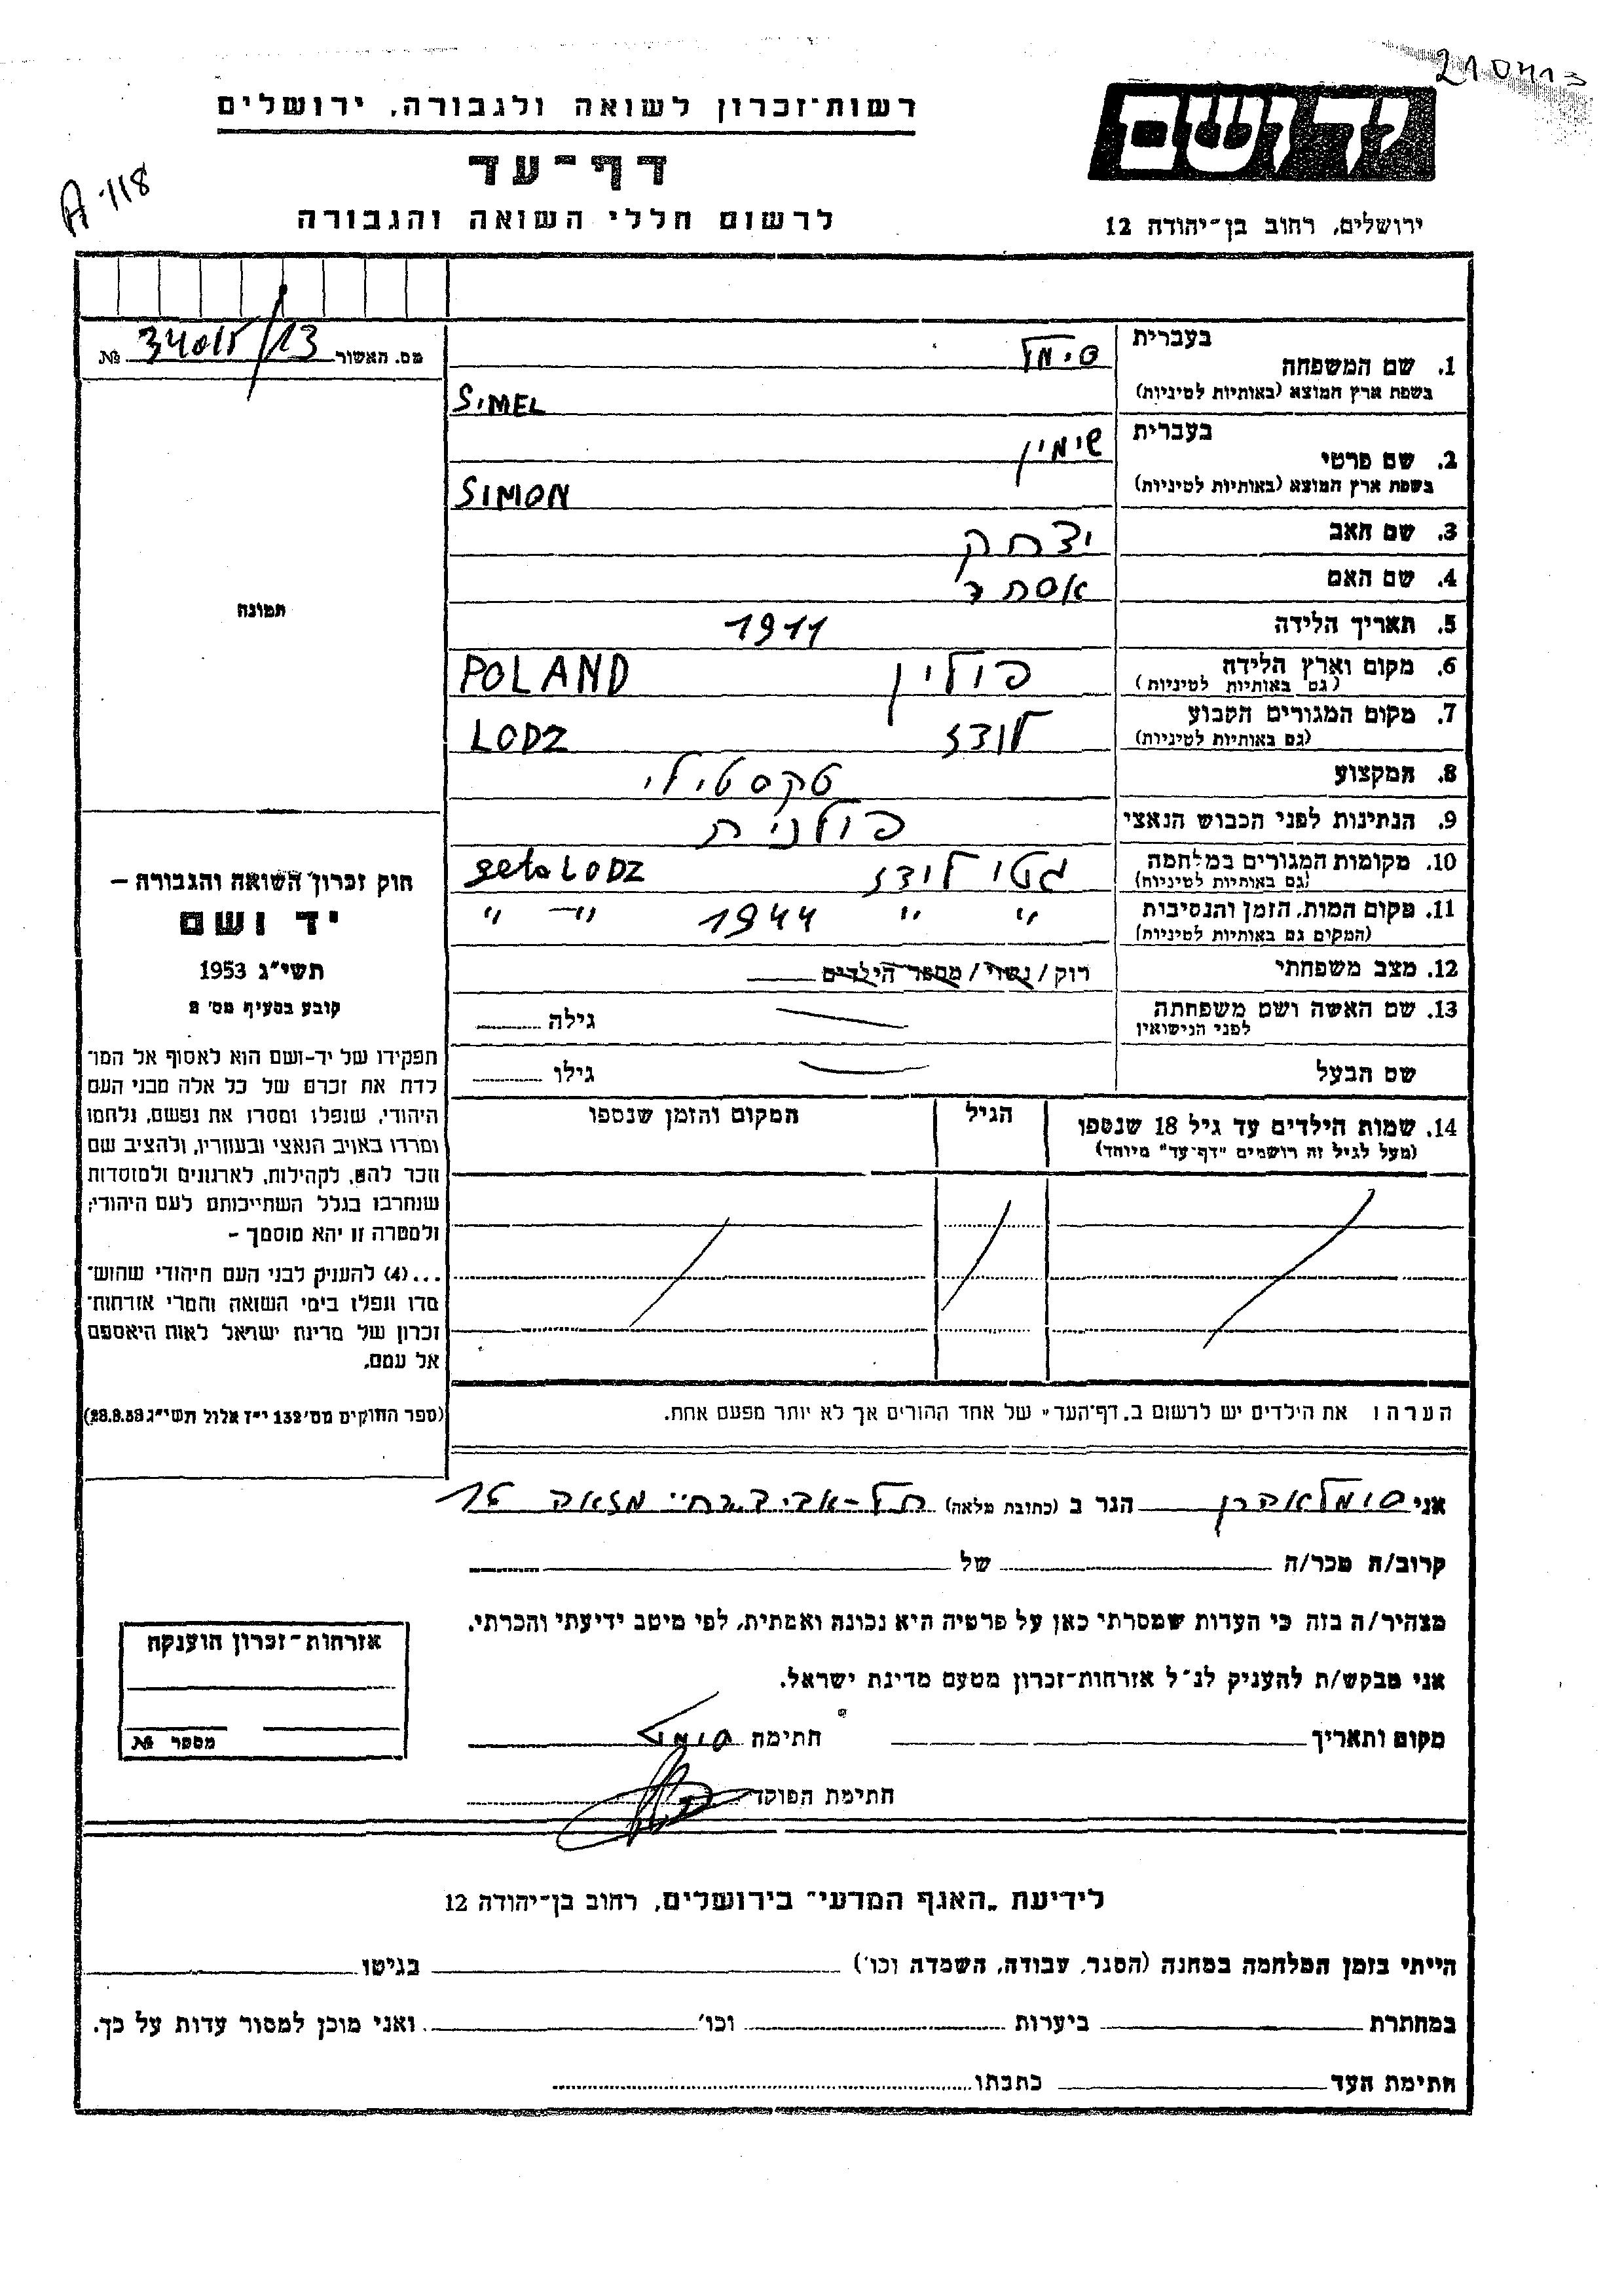 210413
רשות־זכרון לשואה ולגבורה, ירושלים
יד ושם
דף־עד
A-118
לרשום חללי השואה והגבורה
ירושלים, רחוב בן־יהודה 12
מס. האשור № 34015/13
1. שם המשפחה
בעברית סימל
בשפת ארץ המוצא (באותיות לטיניות) SIMEL
2. שם פרטי
בעברית שימין
בשפת ארץ המוצא (באותיות לטיניות) SIMON
3. שם האב יצחק
4. שם האם אסתר
5. תאריך הלידה 1911
6. מקום וארץ הלידה פולין POLAND
(גם באותיות לטיניות)
7. מקום המגורים הקבוע לודז LODZ
(גם באותיות לטיניות)
8. המקצוע טקסטילי
9. הנתינות לפני הכבוש הנאצי פולנית
10. מקומות המגורים במלחמה גטו לודז geto LODZ
(גם באותיות לטיניות)
11. מקום המות, הזמן והנסיבות " " 1944 " "
(המקום גם באותיות לטיניות)
12. מצב משפחתי רוק/נשוי/מספר הילדים
13. שם האשה ושם משפחתה גילה
לפני הנישואין
שם הבעל גילו
14. שמות הילדים עד גיל 18 שנספו הגיל המקום והזמן שנספו
(מעל לגיל זה רושמים "דף־עד" מיוחד)
הערה: את הילדים יש לרשום ב„דף־העד" של אחד ההורים אך לא יותר מפעם אחת.
תמונה
חוק זכרון השואה והגבורה –
יד ושם
תשי"ג 1953
קובע בסעיף מס' 2
תפקידו של יד-ושם הוא לאסוף אל המו־
לדת את זכרם של כל אלה מבני העם
היהודי, שנפלו ומסרו את נפשם, נלחמו
ומרדו באויב הנאצי ובעוזריו, ולהציב שם
וזכר להם, לקהילות, לארגונים ולמוסדות
שנחרבו בגלל השתייכותם לעם היהודי;
ולמטרה זו יהא מוסמך –
...(4) להעניק לבני העם היהודי שהוש־
מדו ונפלו בימי השואה והמרי אזרחות־
זכרון של מדינת ישראל לאות היאספם
אל עמם.
(ספר החוקים מס' 132 י"ז אלול תשי"ג 28.8.53)
אני סומל אהרן הגר ב (כתובת מלאה) תל-אביב רח' מזאה 16
קרוב/ה מכר/ה של
מצהיר/ה בזה כי העדות שמסרתי כאן על פרטיה היא נכונה ואמתית, לפי מיטב ידיעתי והכרתי.
אני מבקש/ת להעניק לנ"ל אזרחות־זכרון מטעם מדינת ישראל.
מקום ותאריך חתימה סומל
חתימת הפוקד
אזרחות־זכרון הוענקה
מספר №
לידיעת „האגף המדעי" בירושלים, רחוב בן־יהודה 12
הייתי בזמן המלחמה במחנה (הסגר, עבודה, השמדה וכו') בגיטו
במחתרת ביערות וכו' ואני מוכן למסור עדות על כך.
חתימת העד כתבתו